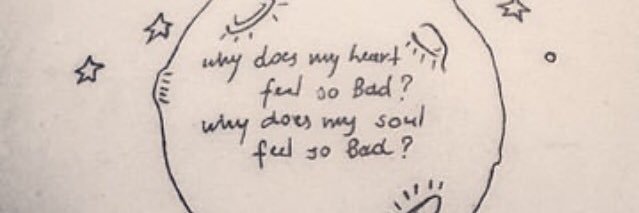 why does my heart
feel so Bad?
why does my soul
feel so Bad?